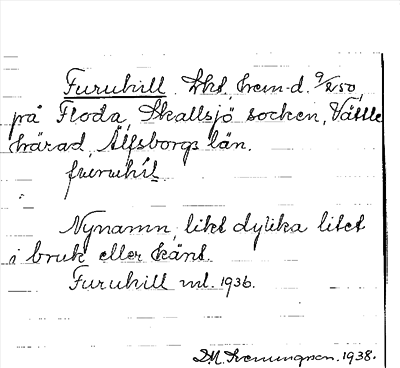 Furuhill, Lht, hem-d. 9/250,
på Floda, Skallsjö socken, Vättle
härad, Älfsborgs län.
furuhíl.
Nynamn, likt dylika litet
i bruk eller känt.
Furuhill ml. 1936.
1938.